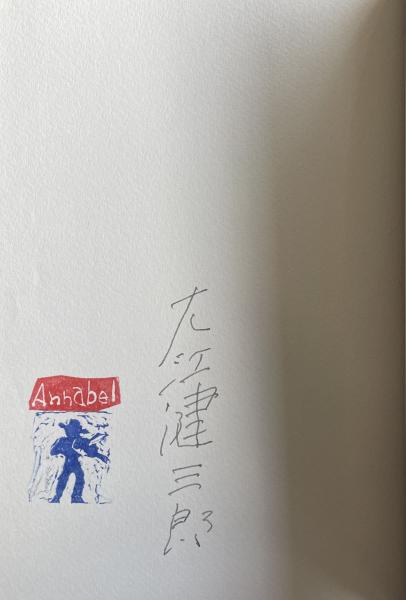 大江健三郎
Annabel